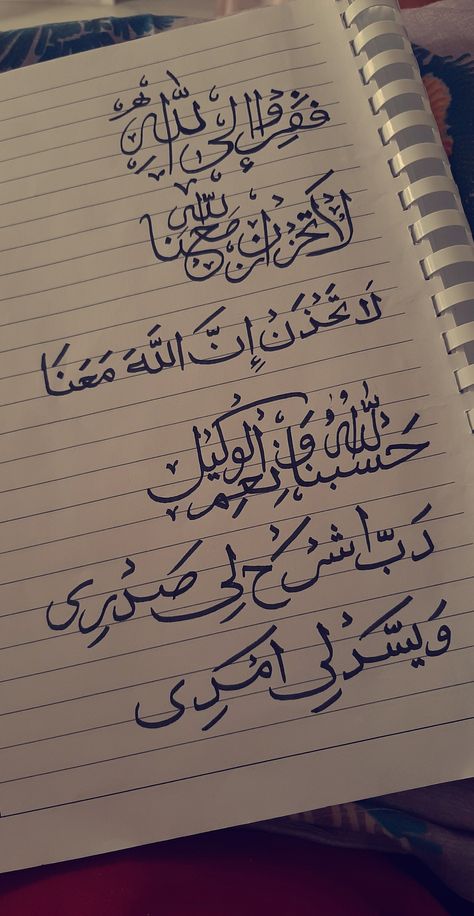 ففروا إلى الله
لا تحزن إن الله معنا
لَا تَحْزَنْ إِنَّ اللَّهَ مَعَنَا
حسبنا الله ونعم الوكيل
رَبِّ اشْرَحْ لِي صَدْرِي
وَيَسِّرْ لِي أَمْرِي